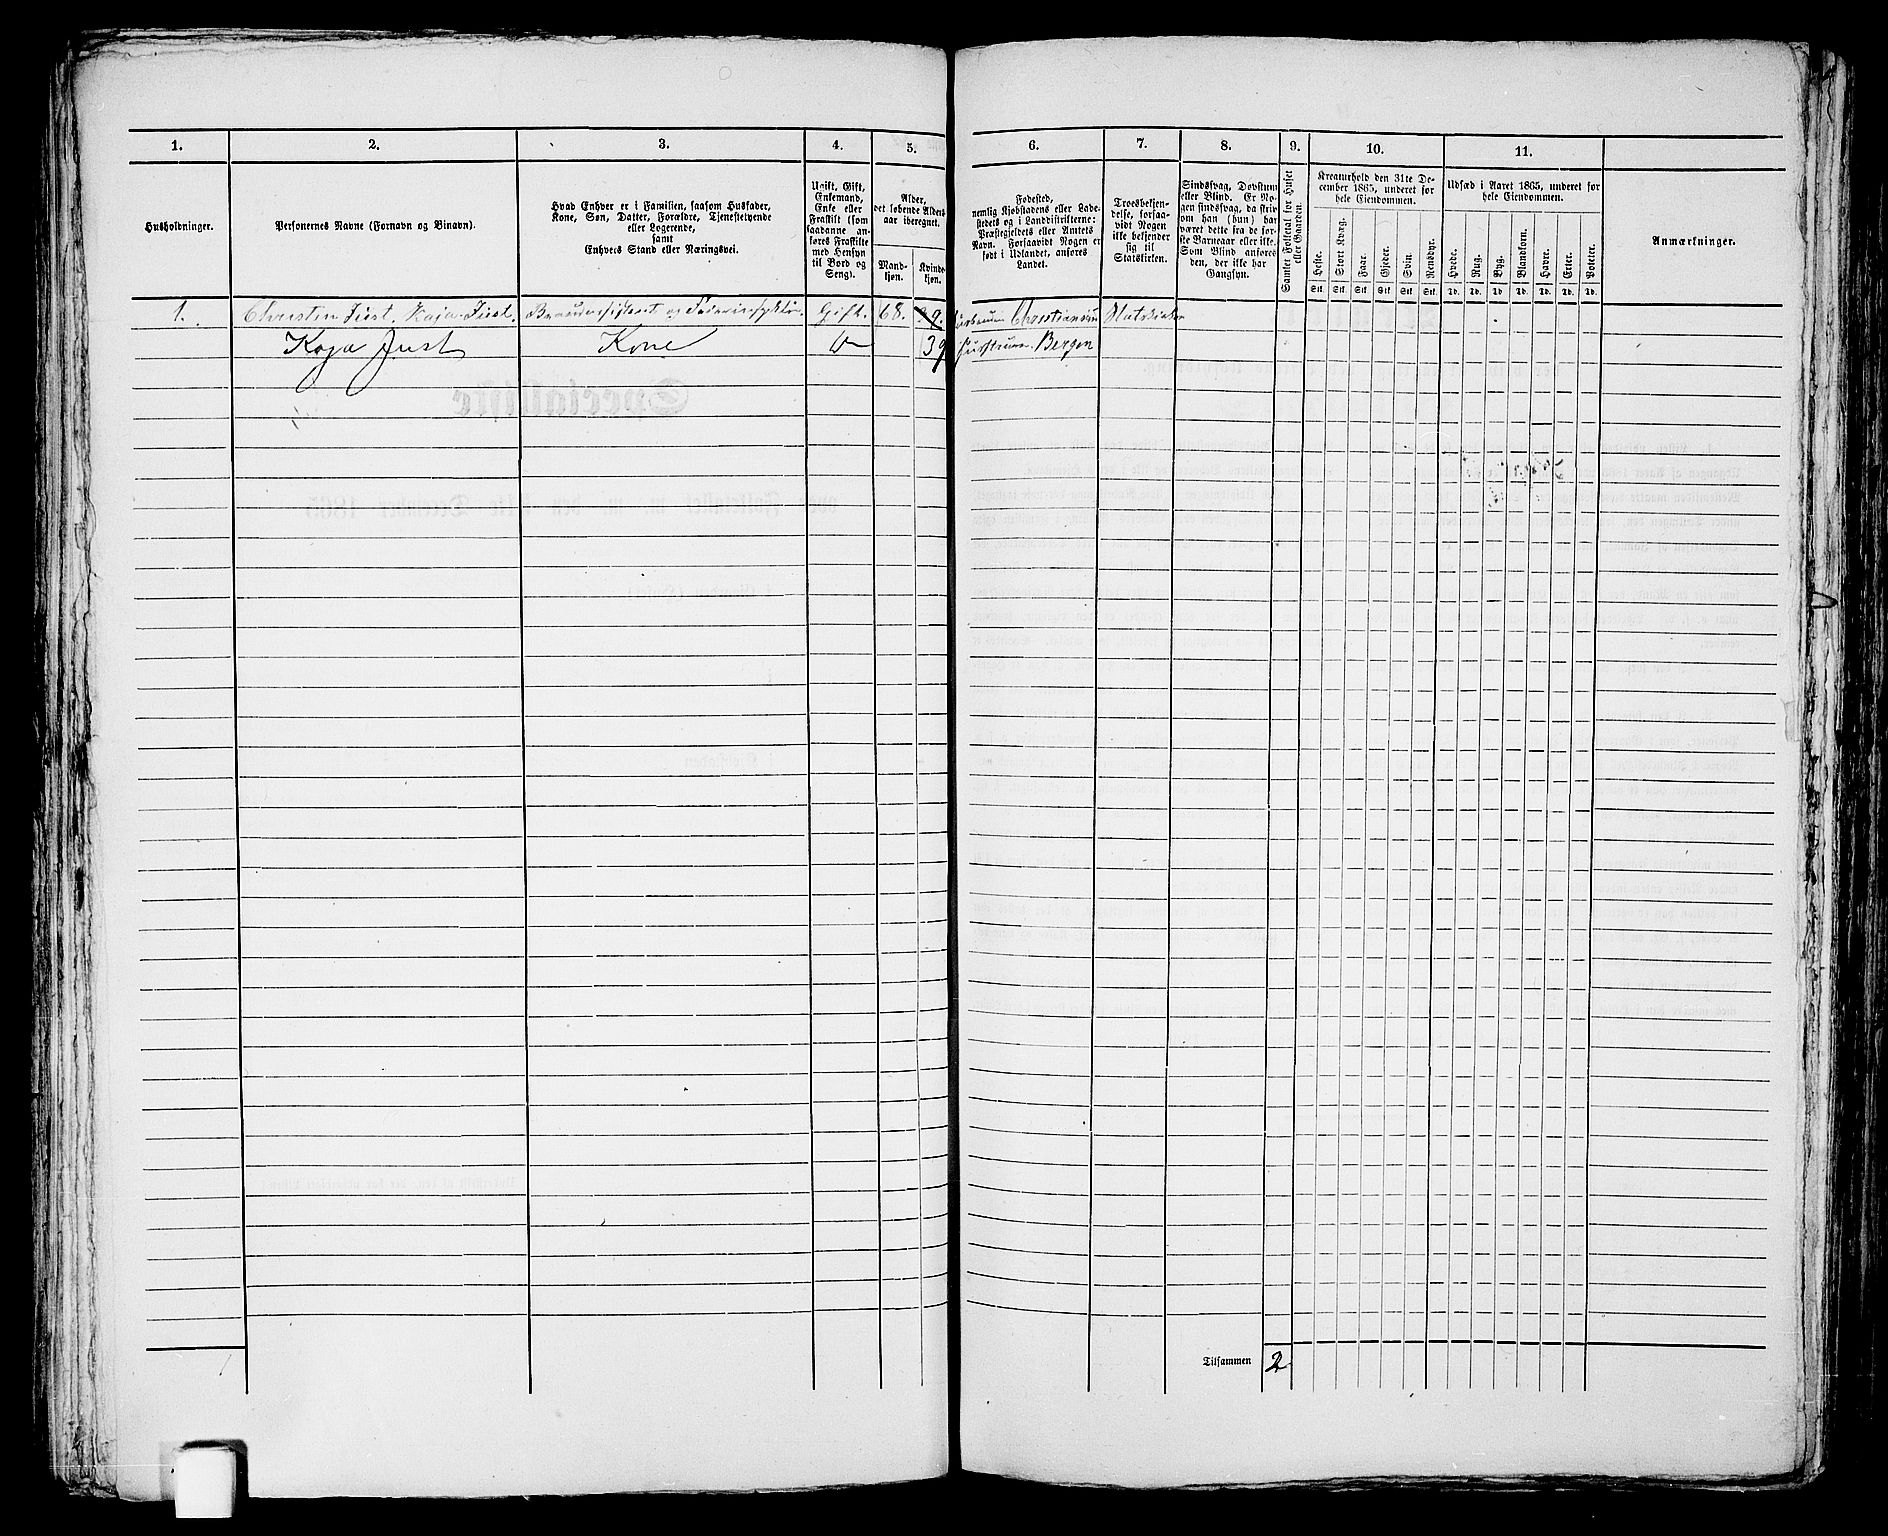 1. 2. 3. 4. 5. 6. 7. 8. 9. 10. 11.
Husholdninger.
Personernes Navne (Fornavn og Binavn).
Hvad Enhver er i Familien, saasom Husfader,
Kone, Søn, Datter, Forældre, Tjenestetyende
eller Logerende,
samt
Enhvers Stand eller Næringsvei.
Ugift, Gift,
Enkemand,
Enke eller
Fraskilt (som
saadanne an-
føres Fraskilte
med Hensyn
til Bord og
Seng).
Alder,
det løbende Alders-
aar iberegnet.
Mand-
kjøn.
Kvinde-
kjøn.
Fødested,
nemlig Kjøbstadens eller Lade-
stedets og i Landdistrikterne:
Præstegjeldets eller Amtets
Navn. Forsaavidt Nogen er
født i Udlandet, anføres
Landet.
Troesbekjen-
delse, forsaa-
vidt Nogen
ikke bekjender
sig til
Statskirken.
Sindssvag, Døvstum
eller Blind. Er No-
gen sindssvag, da skriv
om han (hun) har
været dette fra de før-
ste Barneaar eller ikke.
Som Blind anføres
den, der ikke har
Gangsyn.
Samlet Folketal for Huset
eller Gaarden.
Kreaturhold den 31te De-
cember 1865, underet for
hele Eiendommen.
Heste.
Stort Kvæg.
Faar.
Gjeder.
Svin.
Rensdyr.
Stk. Stk. Stk. Stk. Stk. Stk.
Udsæd i Aaret 1865, underet for
hele Eiendommen.
Hvede.
Rug.
Byg.
Blandkorn.
Havre.
Erter.
Poteter.
Td. Td. Td. Td. Td. Td. Td.
Anmærkninger.
1. Christen Just. Kaja Just. og Gift. 68. Christianssund Statskirken
Kaja Just Kone 39 Bergen
Tilsammen 2